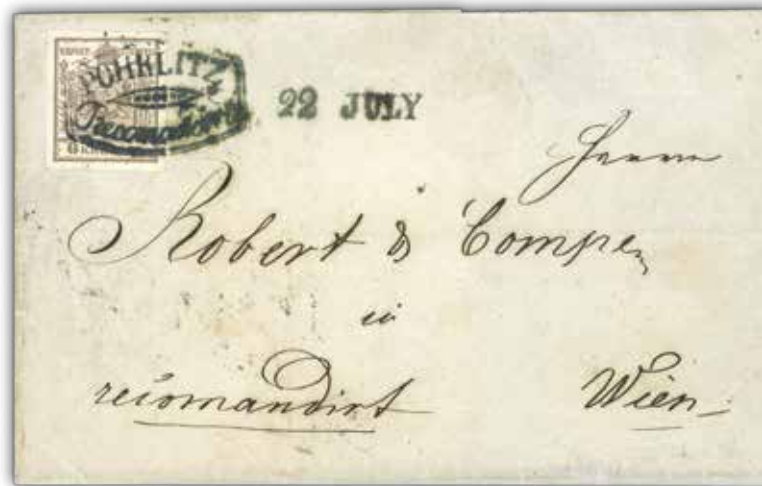 POHRLITZ
Recomandirt
22 JULY
Herrn
Robert & Compe
in
recomandirt
Wien